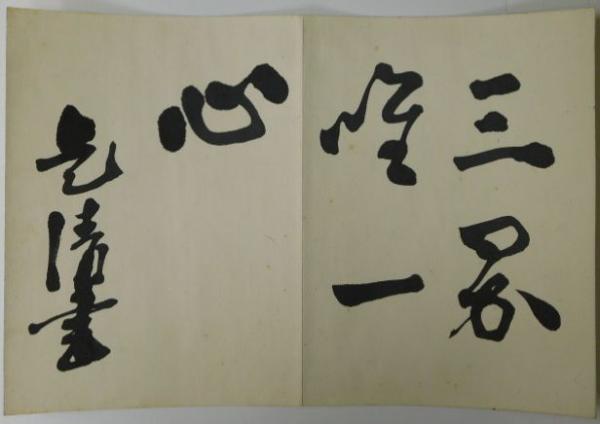 三界
唯一
心
是清書